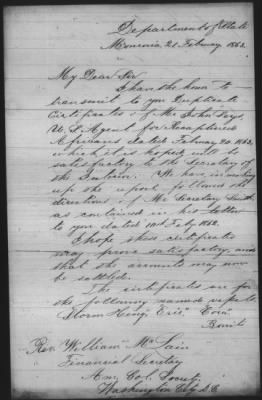 Department of State
Monrovia 21 February 1863.
My Dear Sir
I have the honor to
transmit to you Duplicate
Certificates of Mr John Seys,
U. S. Agent for Recaptured
Africans dated February 20 1863,
which it is hoped will be
satisfactory to the Secretary of
the Interior. We have in making
up the report followed the
directions of Mr Secretary Smith
as contained in his letter
to you dated
I hope these certificates
may prove satisfactory, and
that the accounts may now
be settled.
The certificates are for
the following named vessels
Storm King, Erie, Cora,
Bonito
Rev. William McLain
Financial Secretary
Am. Col. Society
Washington City D.C.